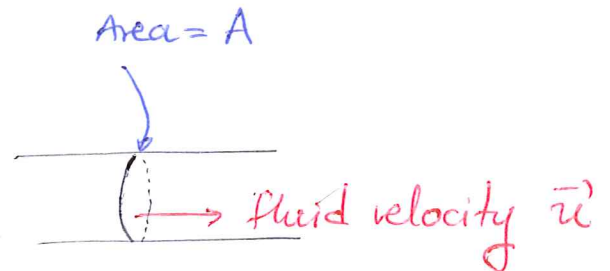 Area = A
fluid velocity u⃗